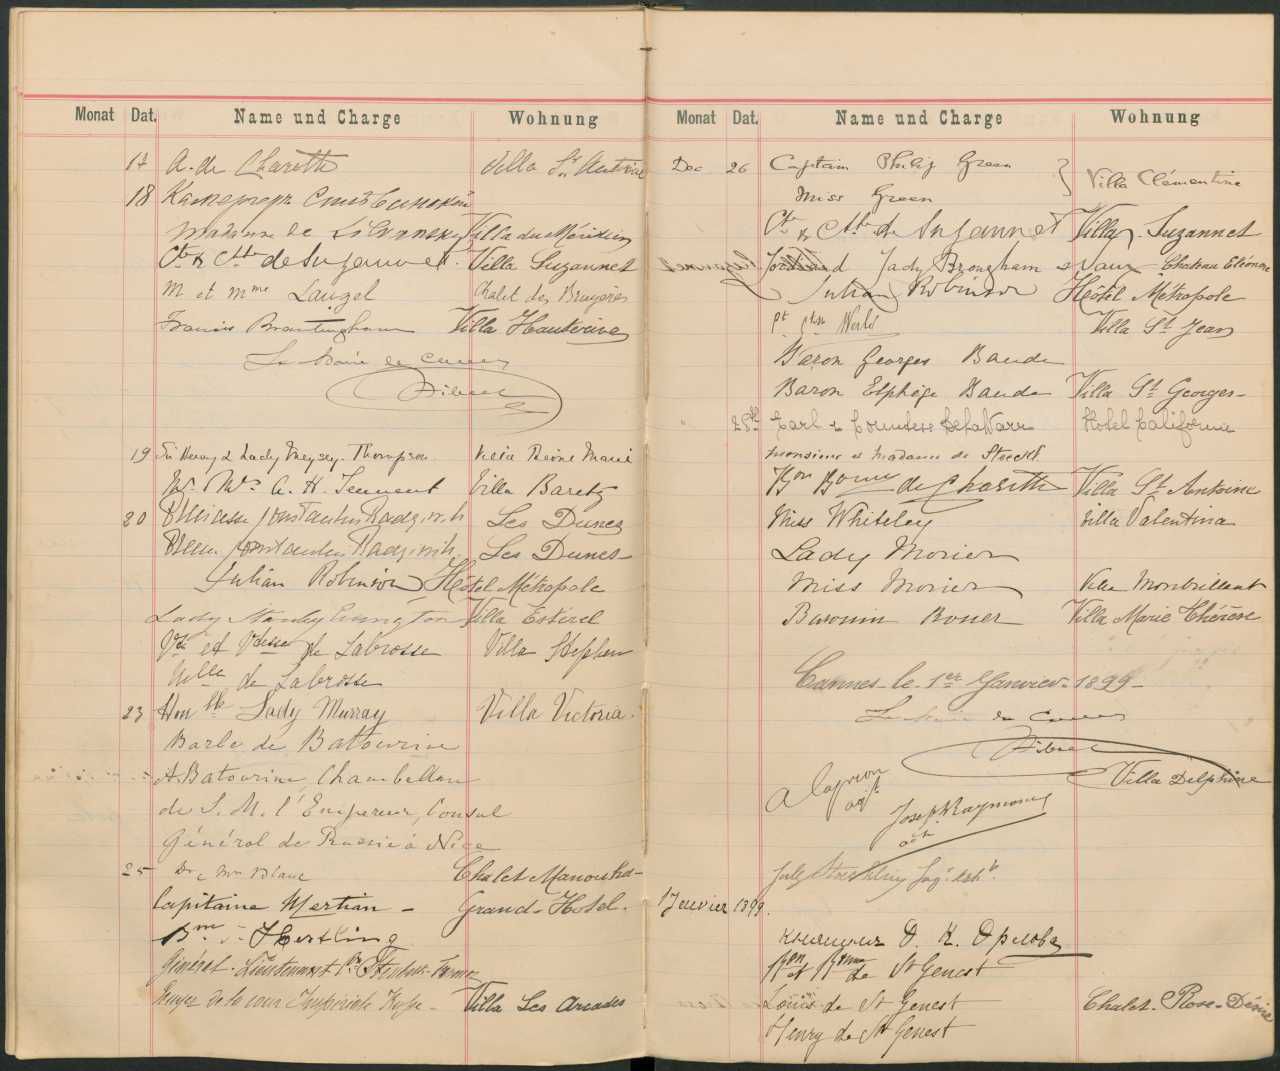 Monat Dat. Name und Charge Wohnung
17 A. de Charette Villa St Antoine
18 Камергеръ
Madame de Villa du Méridien
Cte & Ctsse de Suzannet. Villa Suzannet
M et Mme Laugel Chalet des Bruyères
Francis Brantingham Villa Hauterive
Le Maire de Cannes
Hibert
19 Sir Henry & Lady Meysey-Thompson Villa Reine Marie
Mr. Mrs A. H. Tennent Villa Baretz
20 Princesse Constantin Radziwill Les Dunes
Prince Constantin Radziwill Les Dunes
Julian Robinson Hôtel Métropole
Lady Stanley Errington Villa Estérel
Vte et Vtesse de Labrosse Villa Stephen
Mlle de Labrosse
23 Honble Lady Murray Villa Victoria.
de Batourine
A. Batourine, Chambellan
de S. M. l'Empereur, Consul
Général de Russie à Nice
25 Dr & Mrs Blanc Chalet Manouska
Capitaine Mertian Grand-Hotel.
Hertling
Général-Lieutenant
de la cour Impériale Villa Les Arcades
Monat Dat. Name und Charge Wohnung
Dec 26 Captain Philip Green
Miss Green } Villa Clémentine
Cte & Ctsse de Suzannet Villa Suzannet
Lady Brougham & Vaux Chateau Eléonore
Julian Robinson Hôtel Métropole
Villa St Jean
Baron Georges Baude
Baron Elphège Baude Villa St Georges
28th Earl & Countess DelaWarr Hotel Californie
Monsieur et Madame de Stoeckl
Bon Bonne de Charette Villa St Antoine
Miss Whiteley Villa Valentina
Lady Morier
Miss Morier Villa Montbrillant
Villa Marie Thérèse
Cannes le 1er Janvier 1899
Le Maire de Cannes
Hibert
Villa Delphine
adjt
Joseph Raymond
adjt
1 Janvier 1899.
О. К. Орлова
Bon et Bonne de St Genest
Louis de St Genest Chalet Rose-Désirée
Henry de St Genest